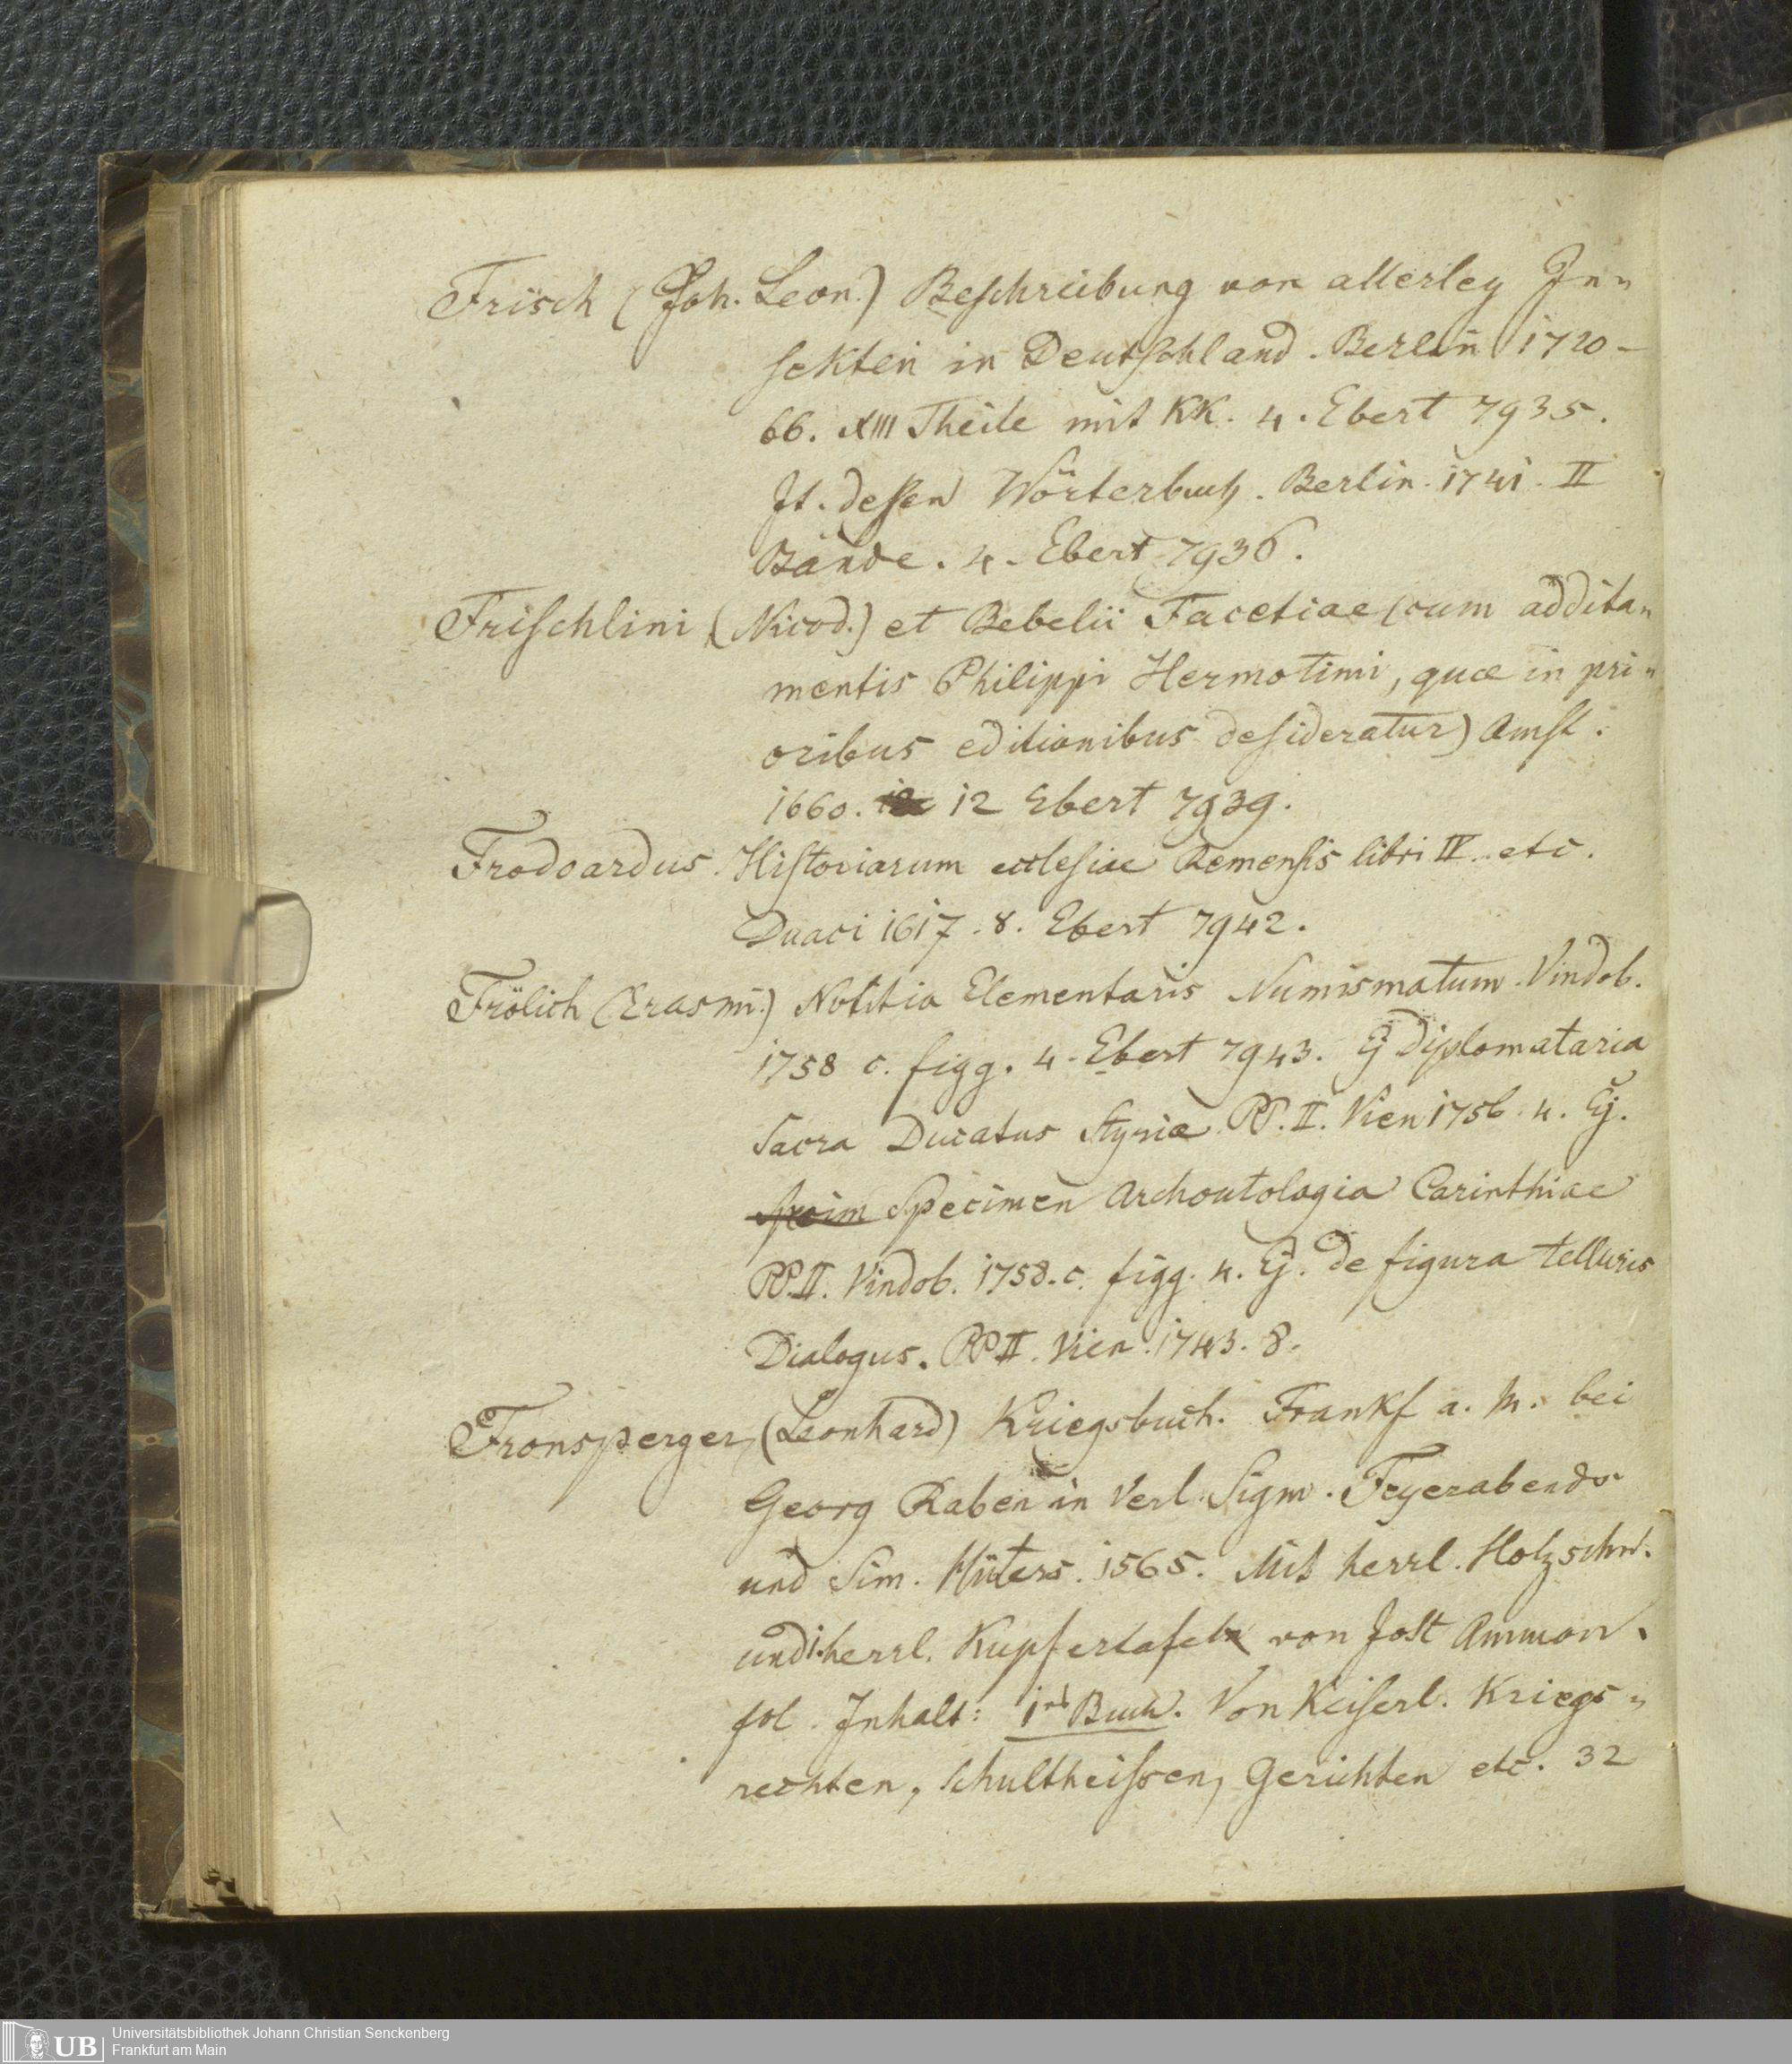 Frisch (Joh. Leon.) Beschreibung von allerley In=
sekten in Deutschland. Berlin 1720–
66. XIII Theile mit KK. 4. Ebert 7935.
It. dessen Wörterbuch. Berlin. 1741. II
Bände. 4. Ebert 7936.
Frischlini (Nicod.) et Bebelii Facetiae (cum addita=
mentis Philippi Hermotimi, quae in pri=
oribus editionibus desideratur) Amst.
1660. 12 Ebert 7939.
Frodoardus. Historiarum ecclesiae Remensis libri IV. etc.
Duaci 1617. 8. Ebert 7942.
Frölich (Erasmi.) Notitia Elementaris Numismatum. Vindob.
1758 c. figg. 4. Ebert 7943. Ej Diplomataria
Sacra Ducatus Styriæ. PP. II. Vien 1756. 4. Ej.
Specimen Archontologia Carinthiae
PP. II. Vindob. 1758. c. figg. 4. Ej. de figura telluris
Dialogus. PP II. Vien. 1743. 8.
Fronsperger, (Leonhard) Kriegsbuch. Frankf a. M. bei
Georg Raben in Verl. Sigm. Feyerabends
und Sim. Hüters. 1565. Mit herrl. Holzschnt.
und herrl. Kupfertafeln von Jost Ammon.
fol. Inhalt: 1rs Buch. Von Keiserl. Kriegs=
rechten, Schultheissen, Gerichten etc. 32
UB
Universitätsbibliothek Johann Christian Senckenberg
Frankfurt am Main